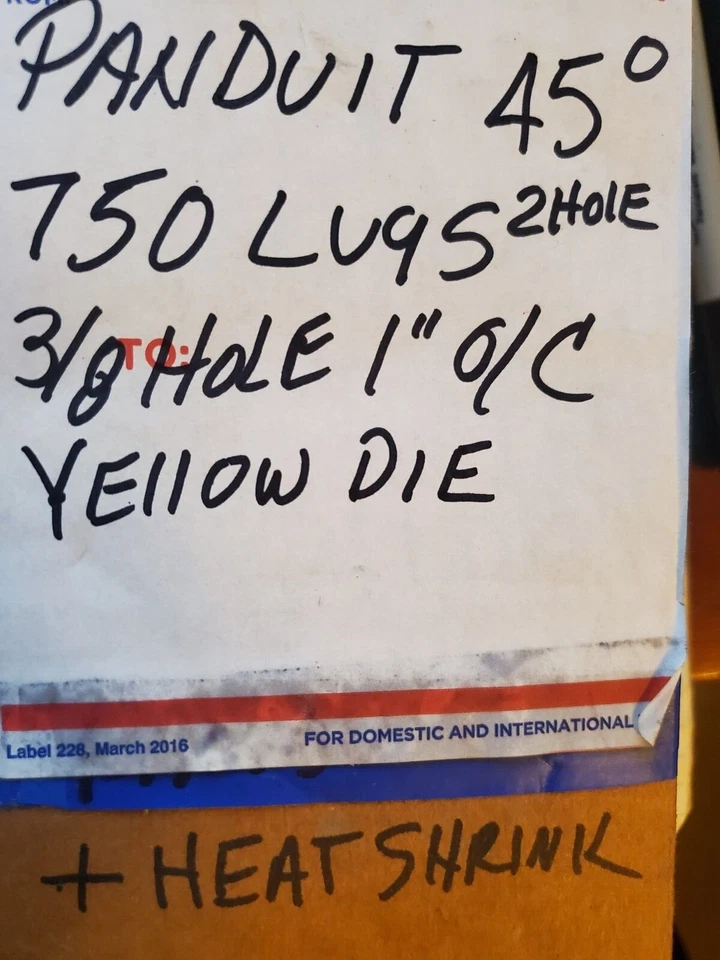 PANDUIT 45°
750 LUgS 2HOlE
3/8 HOLE 1" O/C
TO:
YEllOW DIE
Label 228, March 2016
FOR DOMESTIC AND INTERNATIONAL
+ HEAT SHRINK